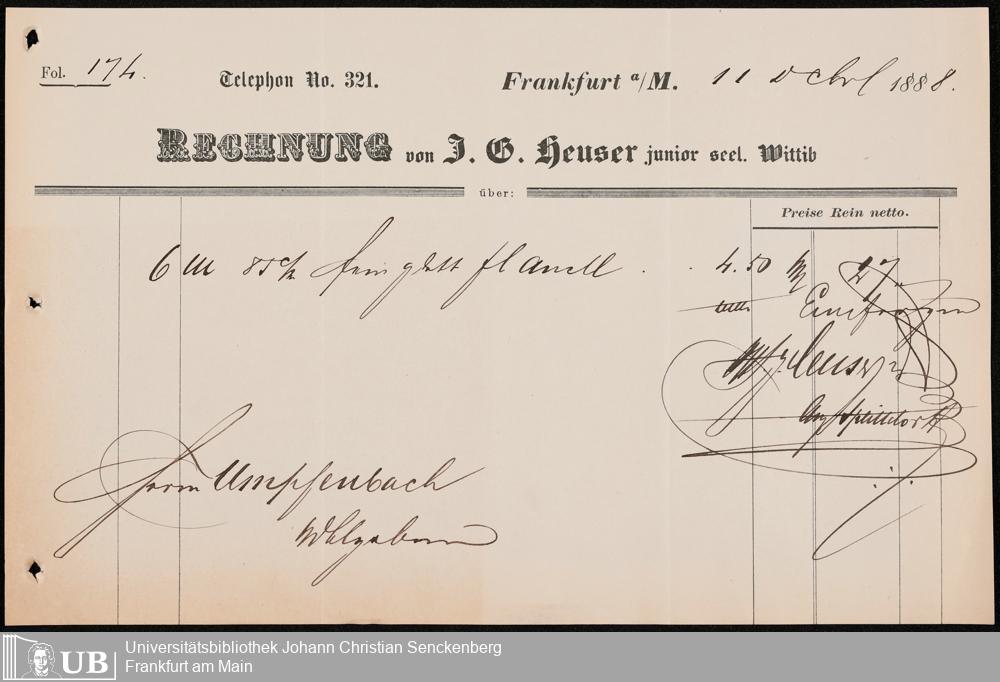 Fol. 174.
Telephon No. 321.
Frankfurt a/M. 11 Dcbr 1888.
RECHNUNG von J. G. Heuser junior seel. Wittib
über:
Preise Rein netto.
6 M 85 c/m fein glatt Flanell . . 4.50 M 27.
Empfangen
Heuser
Herrn Umpfenbach
Wohlgeboren
Universitätsbibliothek Johann Christian Senckenberg
Frankfurt am Main
UB